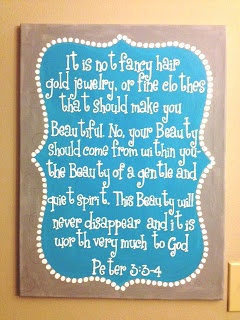 It is not fancy hair
gold jewelry, or fine clothes
that should make you
Beautiful. No, your Beauty
should come from within you-
the Beauty of a gentle and
quiet spirit. This Beauty will
never disappear and it is
worth very much to God
Peter 3:3-4